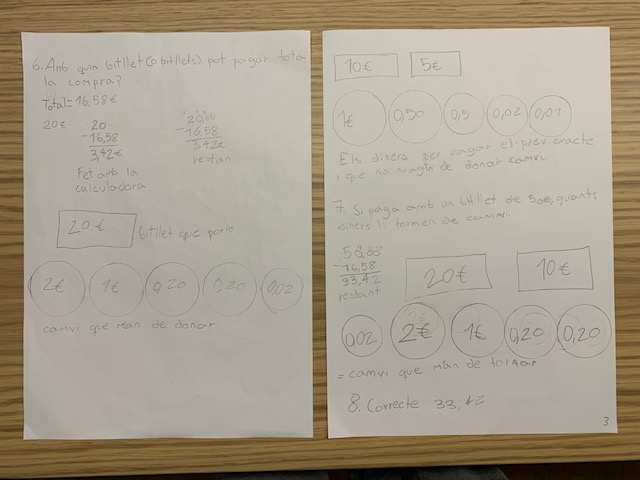 6. Amb quin bitllet (o bitllets) pot pagar tota
la compra?
Total = 16,58€
20€
20
-16,58
3,42€
Fet amb la
calculadora
20,00
-16,58
3,42€
restan
20€
bitllet que porto
2€ 1€ 0,20 0,20 0,02
camvi que m'an de donar
10€ 5€
1€ 0,50 0,5 0,02 0,01
Els diners per pagar el preu exacte
i que no m'agin de donar camvi.
7. Si paga amb un bitllet de 50€, quants
diners li tornen de camvi.
50,00
-16,58
33,42
restant
20€ 10€
0,02 2€ 1€ 0,20 0,20
= camvi que m'an de tornar
8. Correcte 33,42
3